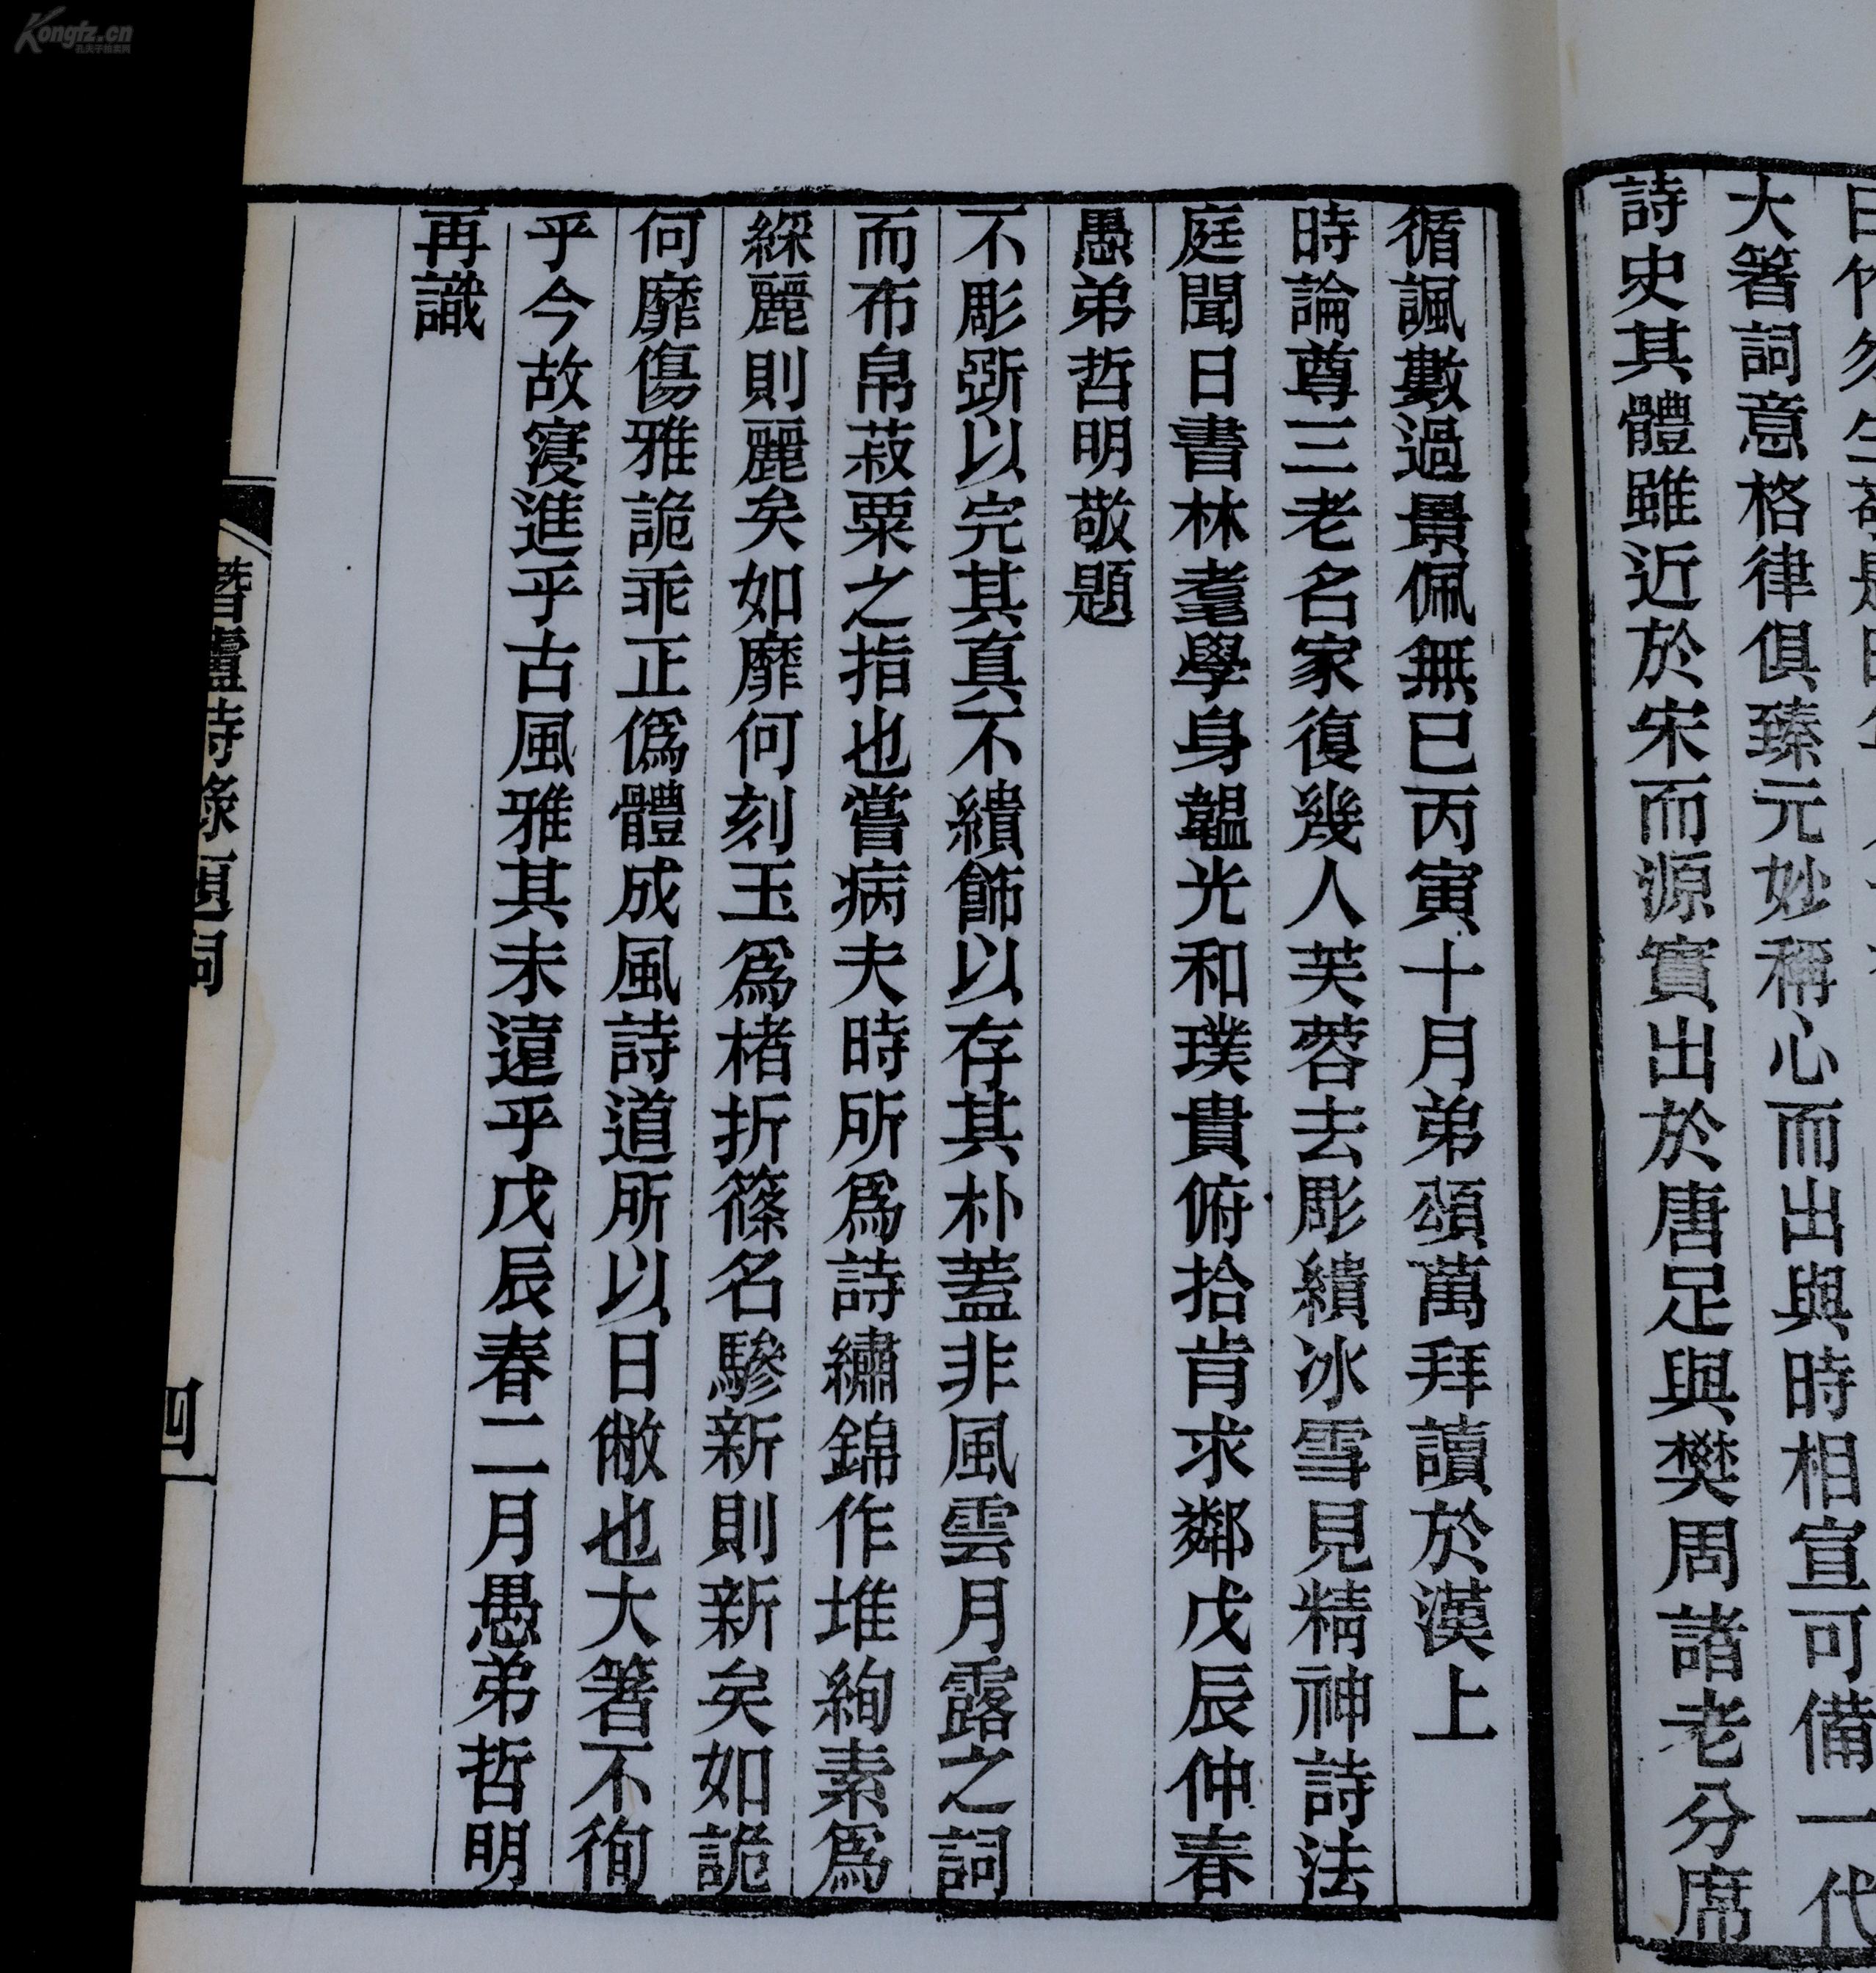 大箸詞意格律俱臻元妙稱心而出與時相宣可備一代
詩史其體雖近於宋而源實出於唐足與樊周諸老分席
循諷數過景佩無已丙寅十月弟頌萬拜讀於漢上
時論尊三老名家復幾人芙蓉去彫繢冰雪見精神詩法
庭聞日書林耄學身韞光和璞貴俯拾肯求鄰戊辰仲春
愚弟哲明敬題
不彫斲以完其真不繢飾以存其朴蓋非風雲月露之詞
而布帛菽粟之指也嘗病夫時所爲詩繡錦作堆絢素爲
綵麗則麗矣如靡何刻玉爲楮折篠名驂新則新矣如詭
何靡傷雅詭乖正僞體成風詩道所以日敝也大箸不徇
乎今故寖進乎古風雅其未遠乎戊辰春二月愚弟哲明
再識
詩錄題詞
四
Kongfz.cn
孔夫子拍卖网